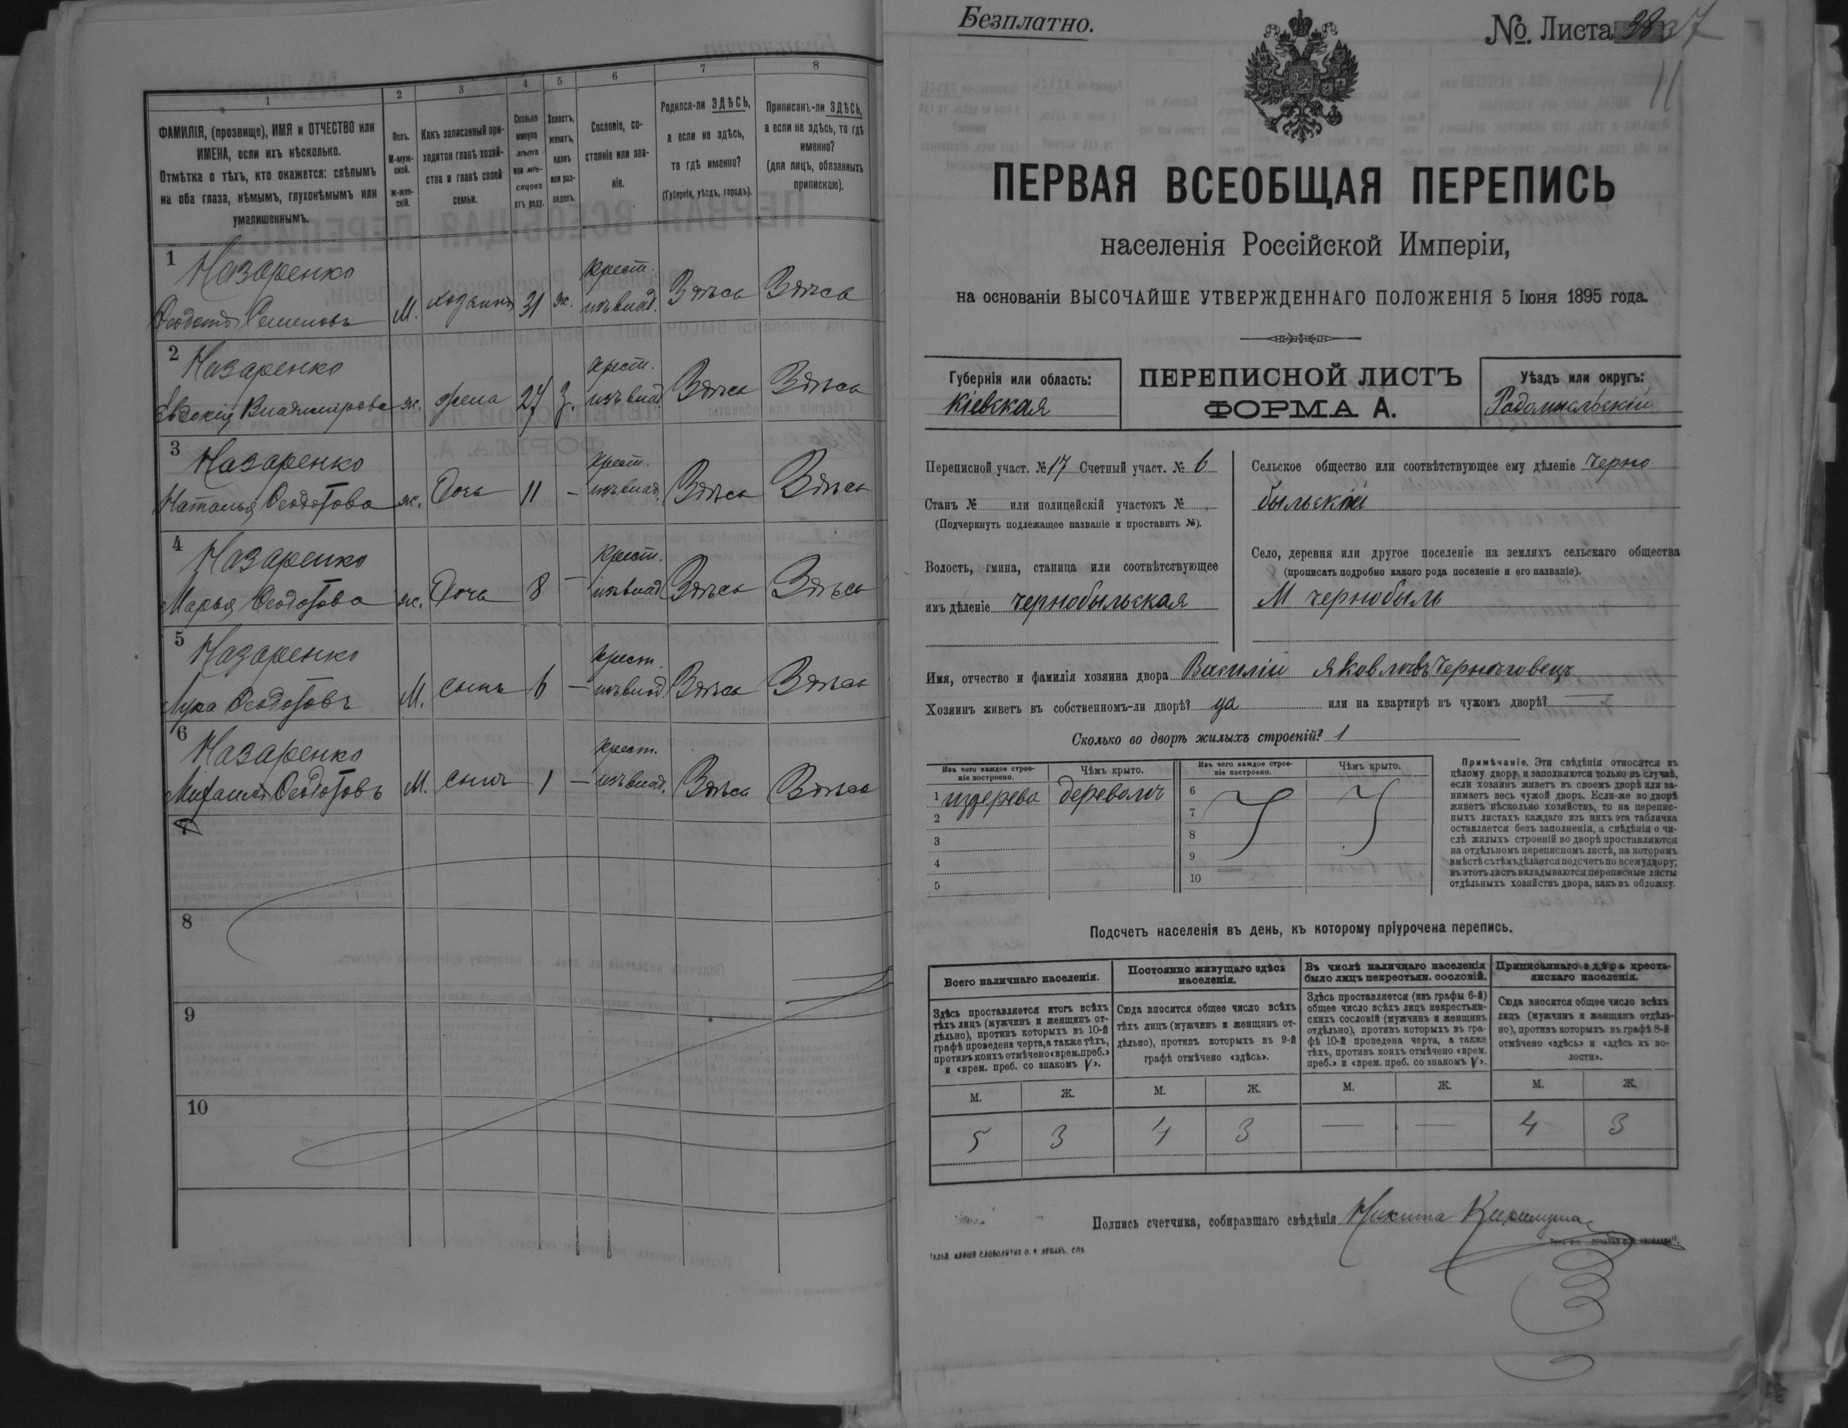 1
2
3
4
5
6
7
8
ФАМИЛІЯ, (прозвище), ИМЯ и ОТЧЕСТВО или
ИМЕНА, если ихъ нѣсколько.
Отмѣтка о тѣхъ, кто окажется: слѣпымъ
на оба глаза, нѣмымъ, глухонѣмымъ или
умалишеннымъ.
Полъ.
М-муж-
ской.
Ж-жен-
скій.
Какъ записанный при-
ходится главѣ хозяй-
ства и главѣ своей
семьи.
Сколько
минуло
лѣтъ
или мѣ-
сяцевъ
отъ роду.
Холостъ,
женатъ,
вдовъ
или раз-
веденъ.
Сословіе, со-
стояніе или зва-
ніе.
Родился-ли ЗДѢСЬ,
а если не здѣсь,
то гдѣ именно?
(Губернія, уѣздъ, городъ).
Приписанъ-ли ЗДѢСЬ,
а если не здѣсь, то гдѣ
именно?
(для лицъ, обязанныхъ
припискою).
1 Назаренко
Ѳеодотъ Семеновъ М. хозяинъ 31 ж. крест. изъ влад. Здѣсь Здѣсь
2 Назаренко
Евдокія ж. жена 27 з. крест. изъ влад. Здѣсь Здѣсь
3 Назаренко
Наталья Ѳеодотова ж. Дочь 11 – крест. изъ влад. Здѣсь Здѣсь
4 Назаренко
Марья Ѳеодотова ж. Дочь 8 – крест. изъ влад. Здѣсь Здѣсь
5 Назаренко
Лука Ѳеодотовъ М. сынъ 6 – крест. изъ влад. Здѣсь Здѣсь
6 Назаренко
Михаилъ Ѳеодотовъ М. сынъ 1 – крест. изъ влад. Здѣсь Здѣсь
7
8
9
10
Безплатно.
№ Листа 37
11
ПЕРВАЯ ВСЕОБЩАЯ ПЕРЕПИСЬ
населенія Россійской Имперіи,
на основаніи ВЫСОЧАЙШЕ УТВЕРЖДЕННАГО ПОЛОЖЕНІЯ 5 Іюня 1895 года.
Губернія или область:
Кіевская
ПЕРЕПИСНОЙ ЛИСТЪ
ФОРМА А.
Уѣздъ или округъ:
Радомысльскій
Переписной участ. № 17 Счетный участ. № 6
Станъ № или полицейскій участокъ №
(Подчеркнуть подлежащее названіе и проставить №).
Волость, гмина, станица или соотвѣтствующее
имъ дѣленіе Чернобыльская
Сельское общество или соотвѣтствующее ему дѣленіе Черно
быльскій
Село, деревня или другое поселеніе на земляхъ сельскаго общества
(прописать подробно какого рода поселеніе и его названіе).
М Чернобыль
Имя, отчество и фамилія хозяина двора Василій Яковлевъ
Хозяинъ живетъ въ собственномъ-ли дворѣ? да или на квартирѣ въ чужомъ дворѣ? —
Сколько во дворѣ жилыхъ строеній? 1
Изъ чего каждое строе-
ніе построено.
Чѣмъ крыто.
Изъ чего каждое строе-
ніе построено.
Чѣмъ крыто.
1 издерева деревомъ
2
3
4
5
6
7
8
9
10
Примѣчаніе. Эти свѣдѣнія относятся къ
цѣлому двору и заполняются только въ случаѣ,
если хозяинъ живетъ въ своемъ дворѣ или за-
нимаетъ весь чужой дворъ. Если-же во дворѣ
живетъ нѣсколько хозяйствъ, то на перепис-
ныхъ листахъ каждаго изъ нихъ эта табличка
оставляется безъ заполненія, а свѣдѣнія о чи-
слѣ жилыхъ строеній во дворѣ проставляются
на отдѣльномъ переписномъ листѣ, на которомъ
вмѣстѣ съ тѣмъ дѣлается подсчетъ по всему двору;
въ этотъ листъ вкладываются переписные листы
отдѣльныхъ хозяйствъ двора, какъ въ обложку.
Подсчетъ населенія въ день, къ которому пріурочена перепись.
Всего наличнаго населенія.
Постоянно живущаго здѣсь
населенія.
Въ числѣ наличнаго населенія
было лицъ некрестьян. сословій.
Приписаннаго здѣсь кресть-
янскаго населенія.
Здѣсь проставляется итогъ всѣхъ
тѣхъ лицъ (мужчинъ и женщинъ от-
дѣльно), противъ которыхъ въ 10-й
графѣ проведена черта, а также тѣхъ,
противъ коихъ отмѣчено «врем. преб.»
и «врем. преб. со знакомъ V».
Сюда вносится общее число всѣхъ
тѣхъ лицъ (мужчинъ и женщинъ от-
дѣльно), противъ которыхъ въ 9-й
графѣ отмѣчено «здѣсь».
Здѣсь проставляется (изъ графы 6-й)
общее число всѣхъ лицъ некрестьян-
скихъ сословій (мужчинъ и женщинъ
отдѣльно), противъ которыхъ въ гра-
фѣ 10-й проведена черта, а также
тѣхъ, противъ коихъ отмѣчено «врем.
преб.» и «врем. преб. со знакомъ V».
Сюда вносится общее число всѣхъ
лицъ (мужчинъ и женщинъ отдѣль-
но), противъ которыхъ въ графѣ 8-й
отмѣчено «здѣсь» и «здѣсь къ во-
лости».
М. Ж. М. Ж. М. Ж. М. Ж.
5 3 4 3 — — 4 3
Подпись счетчика, собиравшаго свѣдѣнія Никита